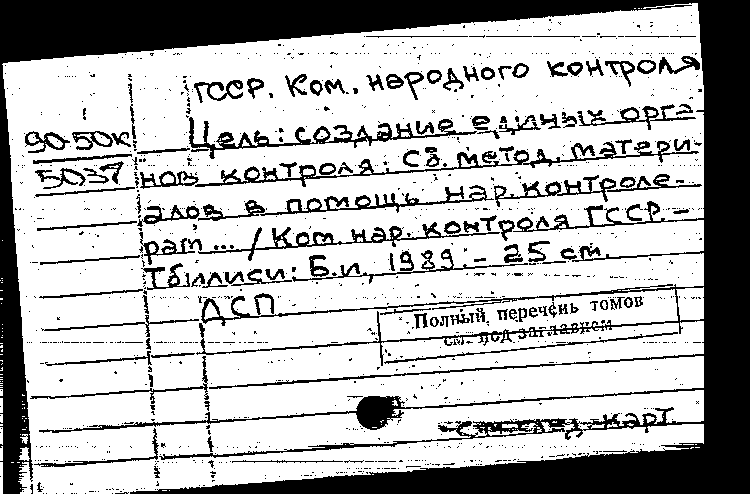 ГССР. Ком. народного контроля
90-50к
Цель: создание единых орга-
5037
нов контроля: Сб. метод. матери-
алов в помощь нар. контроле-
рам ... / Ком. нар. контроля ГССР. -
Тбилиси: Б.и., 1989. - 25 см.
ДСП.
Полный перечень томов
см. под заглавием
см. след. карт.